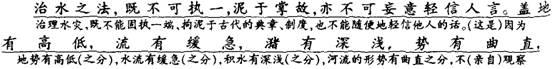 治水之法，既不可执一，泥于掌故，亦不可妄意轻信人言。盖地
治理水灾，既不能固执一端，拘泥于古代的典章、制度，也不能随便地轻信他人的话。(这是)因为
有高低，流有缓急，潴有深浅，势有曲直，
地势有高低(之分)，水流有缓急(之分)，积水有深浅(之分)，河流的形势有曲直之分，不(亲自)观察